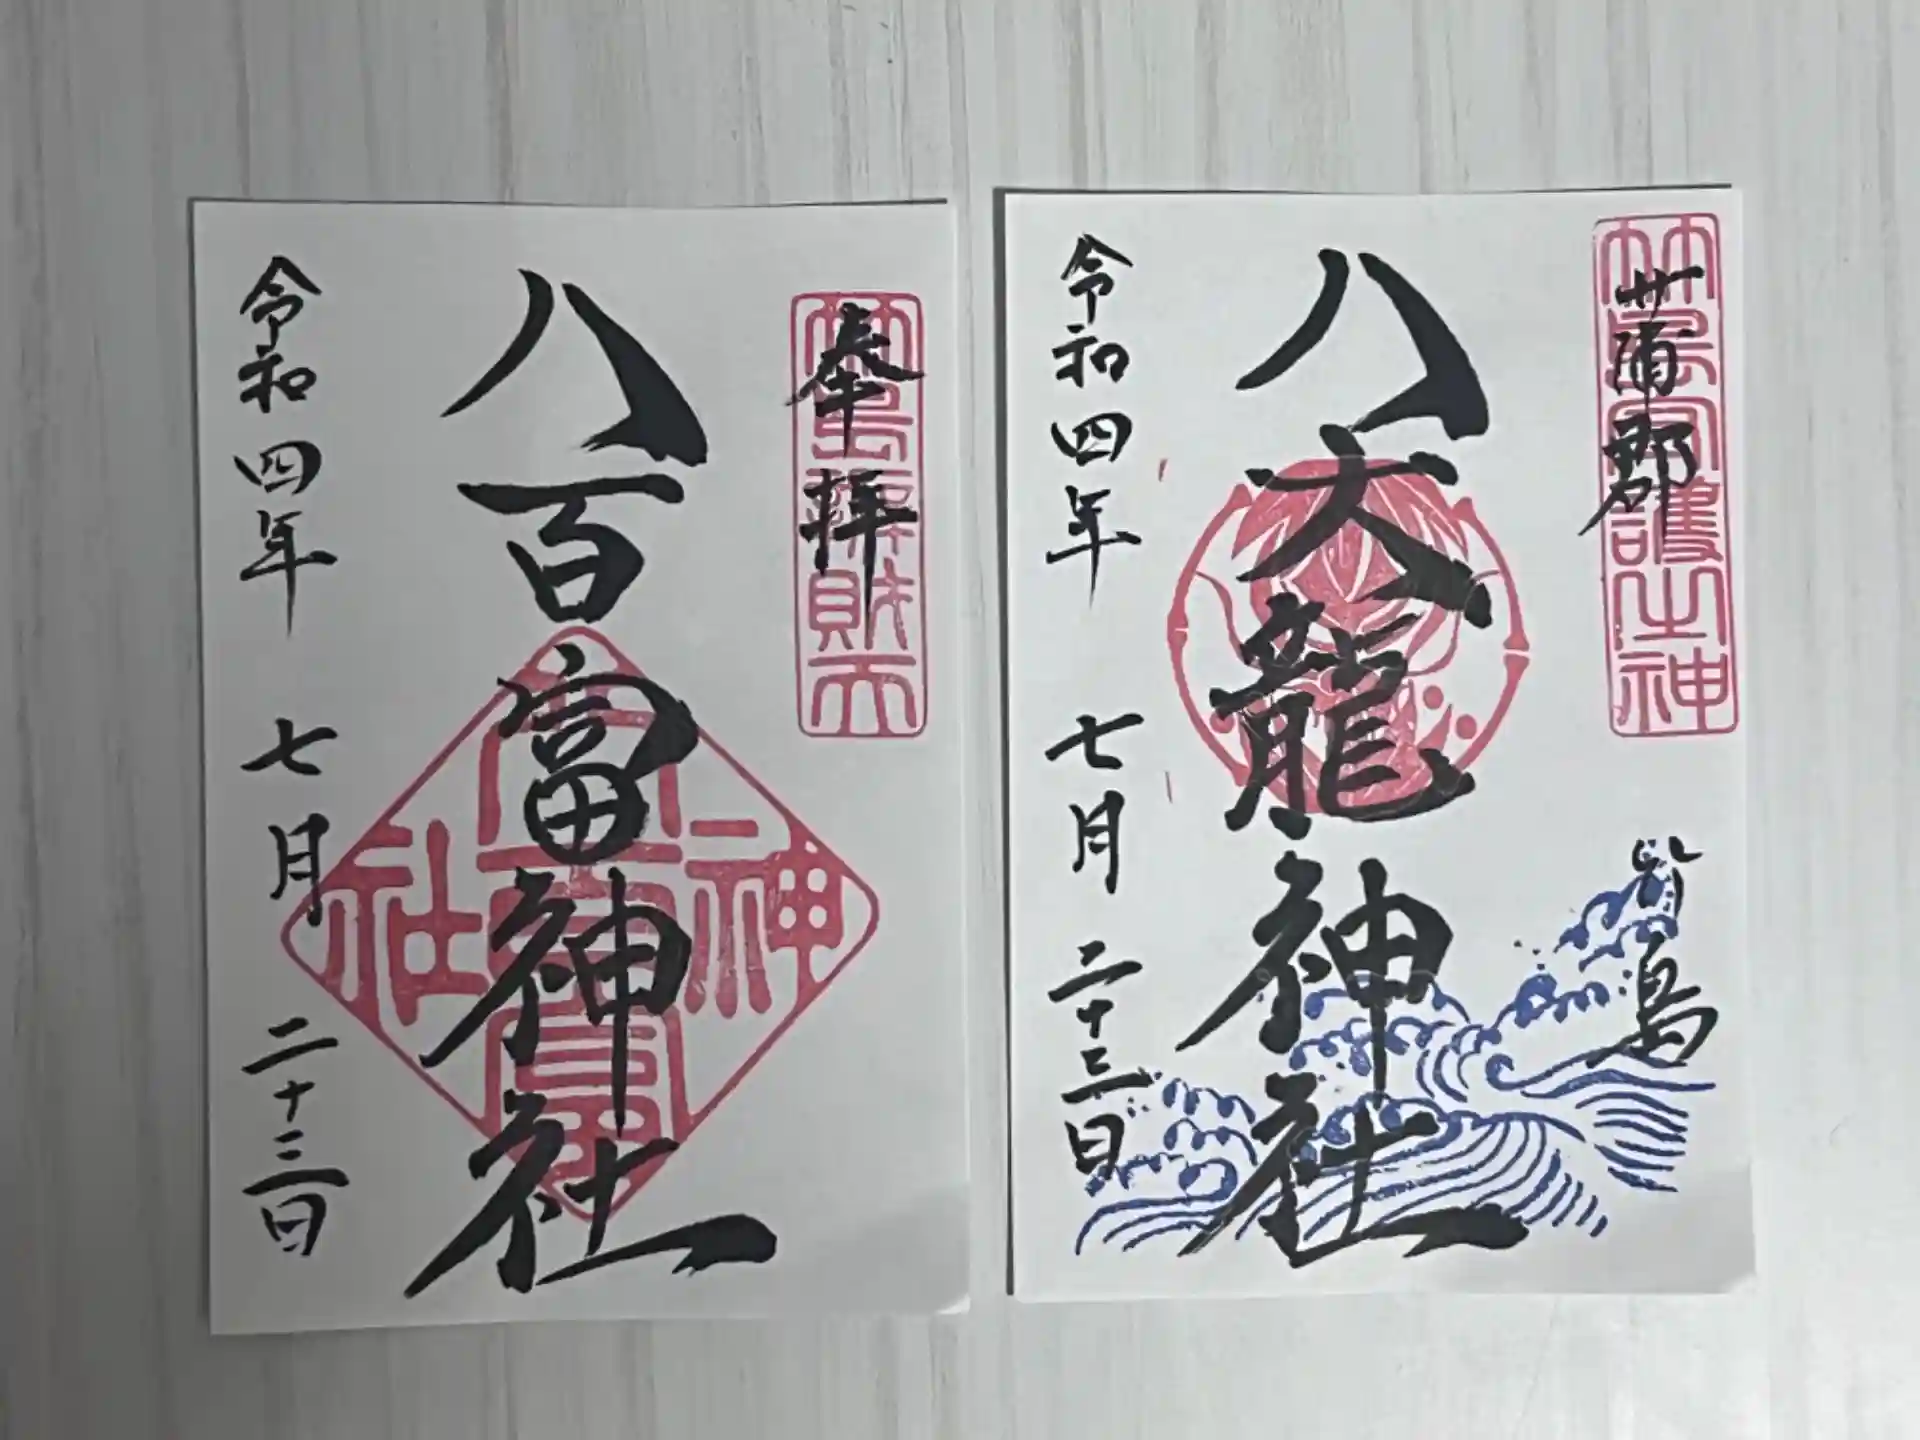 奉拝
竹島辨財天
八百富神社
八百富神社
令和四年 七月 二十三日
蒲郡
竹島
竹島守護之神
八大龍神社
令和四年 七月 二十三日